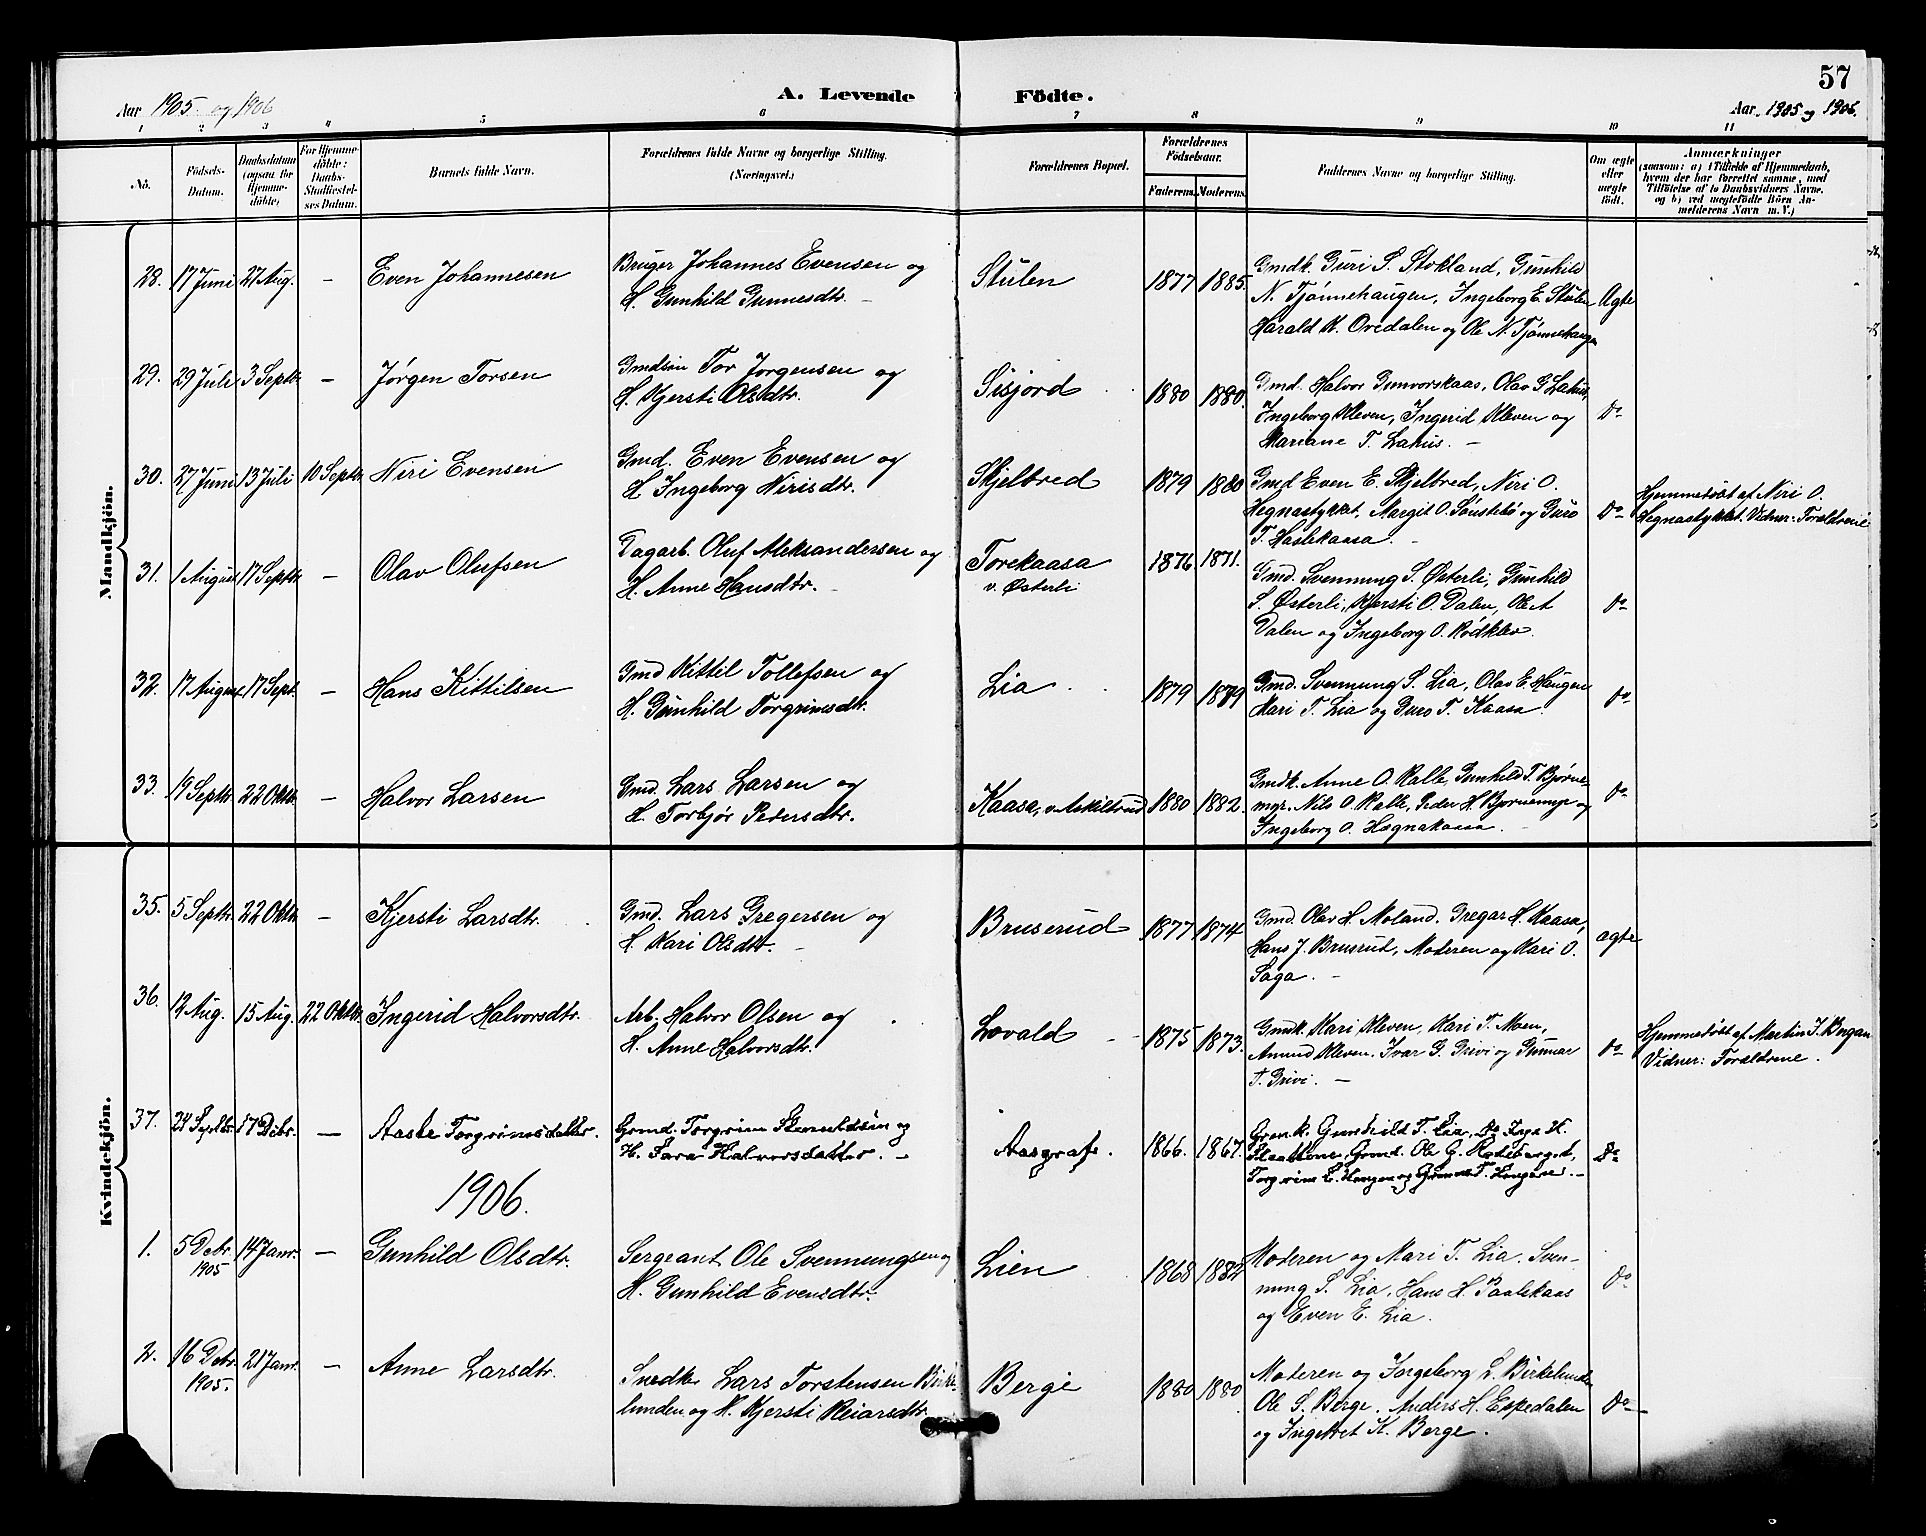 57
Aar 1905 og 1906
A. Levende Födte.
Aar 1905 og 1906.
1 2 3 4 5 6 7 8 9 10 11
No.
Födsels-
Datum.
Daabsdatum
(ogsaa for
Hjemme-
döbte)
For Hjemme-
döbte:
Daabs-
Stadfæstel-
ses Datum.
Barnets fulde Navn.
Forældrenes fulde Navne og borgerlige Stilling.
(Næringsvei.)
Forældrenes Bopæl.
Forældrenes
Födselsaar.
Faderens. Moderens.
Faddernes Navne og borgerlige Stilling.
Om ægte
eller
uægte
födt.
Anmærkninger
(saasom: a) i Tilfælde af Hjemmedaab,
hvem der har forrettet samme, med
Tilföielse af to Daabsvidners Navne,
og b) ved uegtefödte Börn An-
melderens Navn m. V.)
Mandkjön.
28. 17 Juni 27 Aug. - Even Johannesen
Bruger Johannes Evensen og
H. Gunhild Gunnesdtr.
Stulen 1877 1885.
Gmdk. Guri S. Stokland, Gunhild
N. Tjønnehaugen, Ingeborg E. Stulen
Harald K. Ovedalen og Ole N. Tjønnehaugen
Ægte
29. 29 Juli 3 Septr. - Jørgen Torsen
Gmdsøn Tor Jørgensen og
H. Kjersti Olsdtr.
Sisjord 1880 1880.
Gmd. Halvor Gunvorskaas, Olav G. Lahus,
Ingeborg Kleven, Ingerid Kleven og
Mariane T. Lahus. -
Do
30. 27 Juni 13 Juli 10 Septr. Niri Evensen
Gmd. Even Evensen og
H Ingeborg Nirisdtr.
Skjelbred 1879 1880
Gmd Even E. Skjelbred, Niri O.
Hegnastykket, Margit O. Sønstebø og Guro
T. Haslekaasa. -
Do
Hjemmedøbt af Niri O.
Hegnastykket. Vidner: Forældrene
31. 1 August 17 Septr. - Olav Olufsen
Dagarb. Oluf Aleksandersen og
H. Anne Hansdtr.
Torekaasa
v. Østerli
1876 1871.
Gmd. Svennung S. Østerli, Gunhild
S. Østerli, Kjersti O. Dalen, Ole A
Dalen og Ingeborg O. Rødklev.
Do
32. 17 August 17 Sept. - Hans Kittilsen
Gmd Kittil Tollefsen og
H. Gunhild Torgrimsdtr.
Lia 1879 1879
Gmd. Svennung S. Lia, Olav E. Haugen
Mari T. Lia og Guro T. Kaasa.
Do
33. 19 Septr. 22 Oktr. - Halvor Larsen
Gmd. Lars Larsen og
H. Torbjør Pedersdtr.
Kaasa, v. Askiltsrud 1880 1882.
Gmdk. Anne O. Kalle, Gunhild T. Bjørne-
myr, Nils O. Kalle, Peder H. Bjørnemyr og
Ingeborg O. Hægnakaasa. -
Do
Kvindekjön.
35. 5 Septr. 22 Oktr. - Kjersti Larsdtr.
Gmd. Lars Gregersen og
H. Kari Olsdtr.
Bruserud 1877 1874
Gmd. Olav H. Moland. Gregar H. Kaasa,
Hans J. Brusrud, Moderen og Kari O.
Saga. -
ægte
36. 12 Aug. 15 Aug. 22 Oktr. Ingerid Halvorsdtr.
Arb. Halvor Olsen og
H. Anne Halvorsdtr.
Lovald 1875 1873.
Gmdk. Kari Kleven, Kari T. Moen,
Amund Kleven, Ivar G. Grivi og Gunnar
T. Grivi. -
Do
Hjemmedøbt af Martin I. Bogan
Vidner: Forældrene.
37. 24 Septbr. 17 Dcbr. - Aaste Torgrimsdatter.
Grmd. Torgrim og
H. Sara Halvorsdatter. -
Aasgrav. 1866. 1867.
Grm.k. Gunhild T. Lia, Do Inga H.
Grmd. Ole G.
Torgrim E. Haugen og
Do
1906.
1. 5 Dcbr.
1905
14 Janr. - Gunhild Olsdtr.
Sergeant Ole Svennungsen og
H. Gunhild Evensdtr.
Lien 1868 1884
Moderen og Mari T. Lia. Sven-
nung S. Lia, Hans H. Paalskaas
og Even E. Lia.
Do
2. 16 Dcbr.
1905.
21 Janr. - Anne Larsdtr.
Snedker Lars Torstensen Birke-
lunden og H. Kjersti Reiarsdtr.
Berge 1880 1880
Moderen og Ingeborg L. Birkelunden
Ole S. Berge. Anders H. Espedalen
og K. Berge.
Do